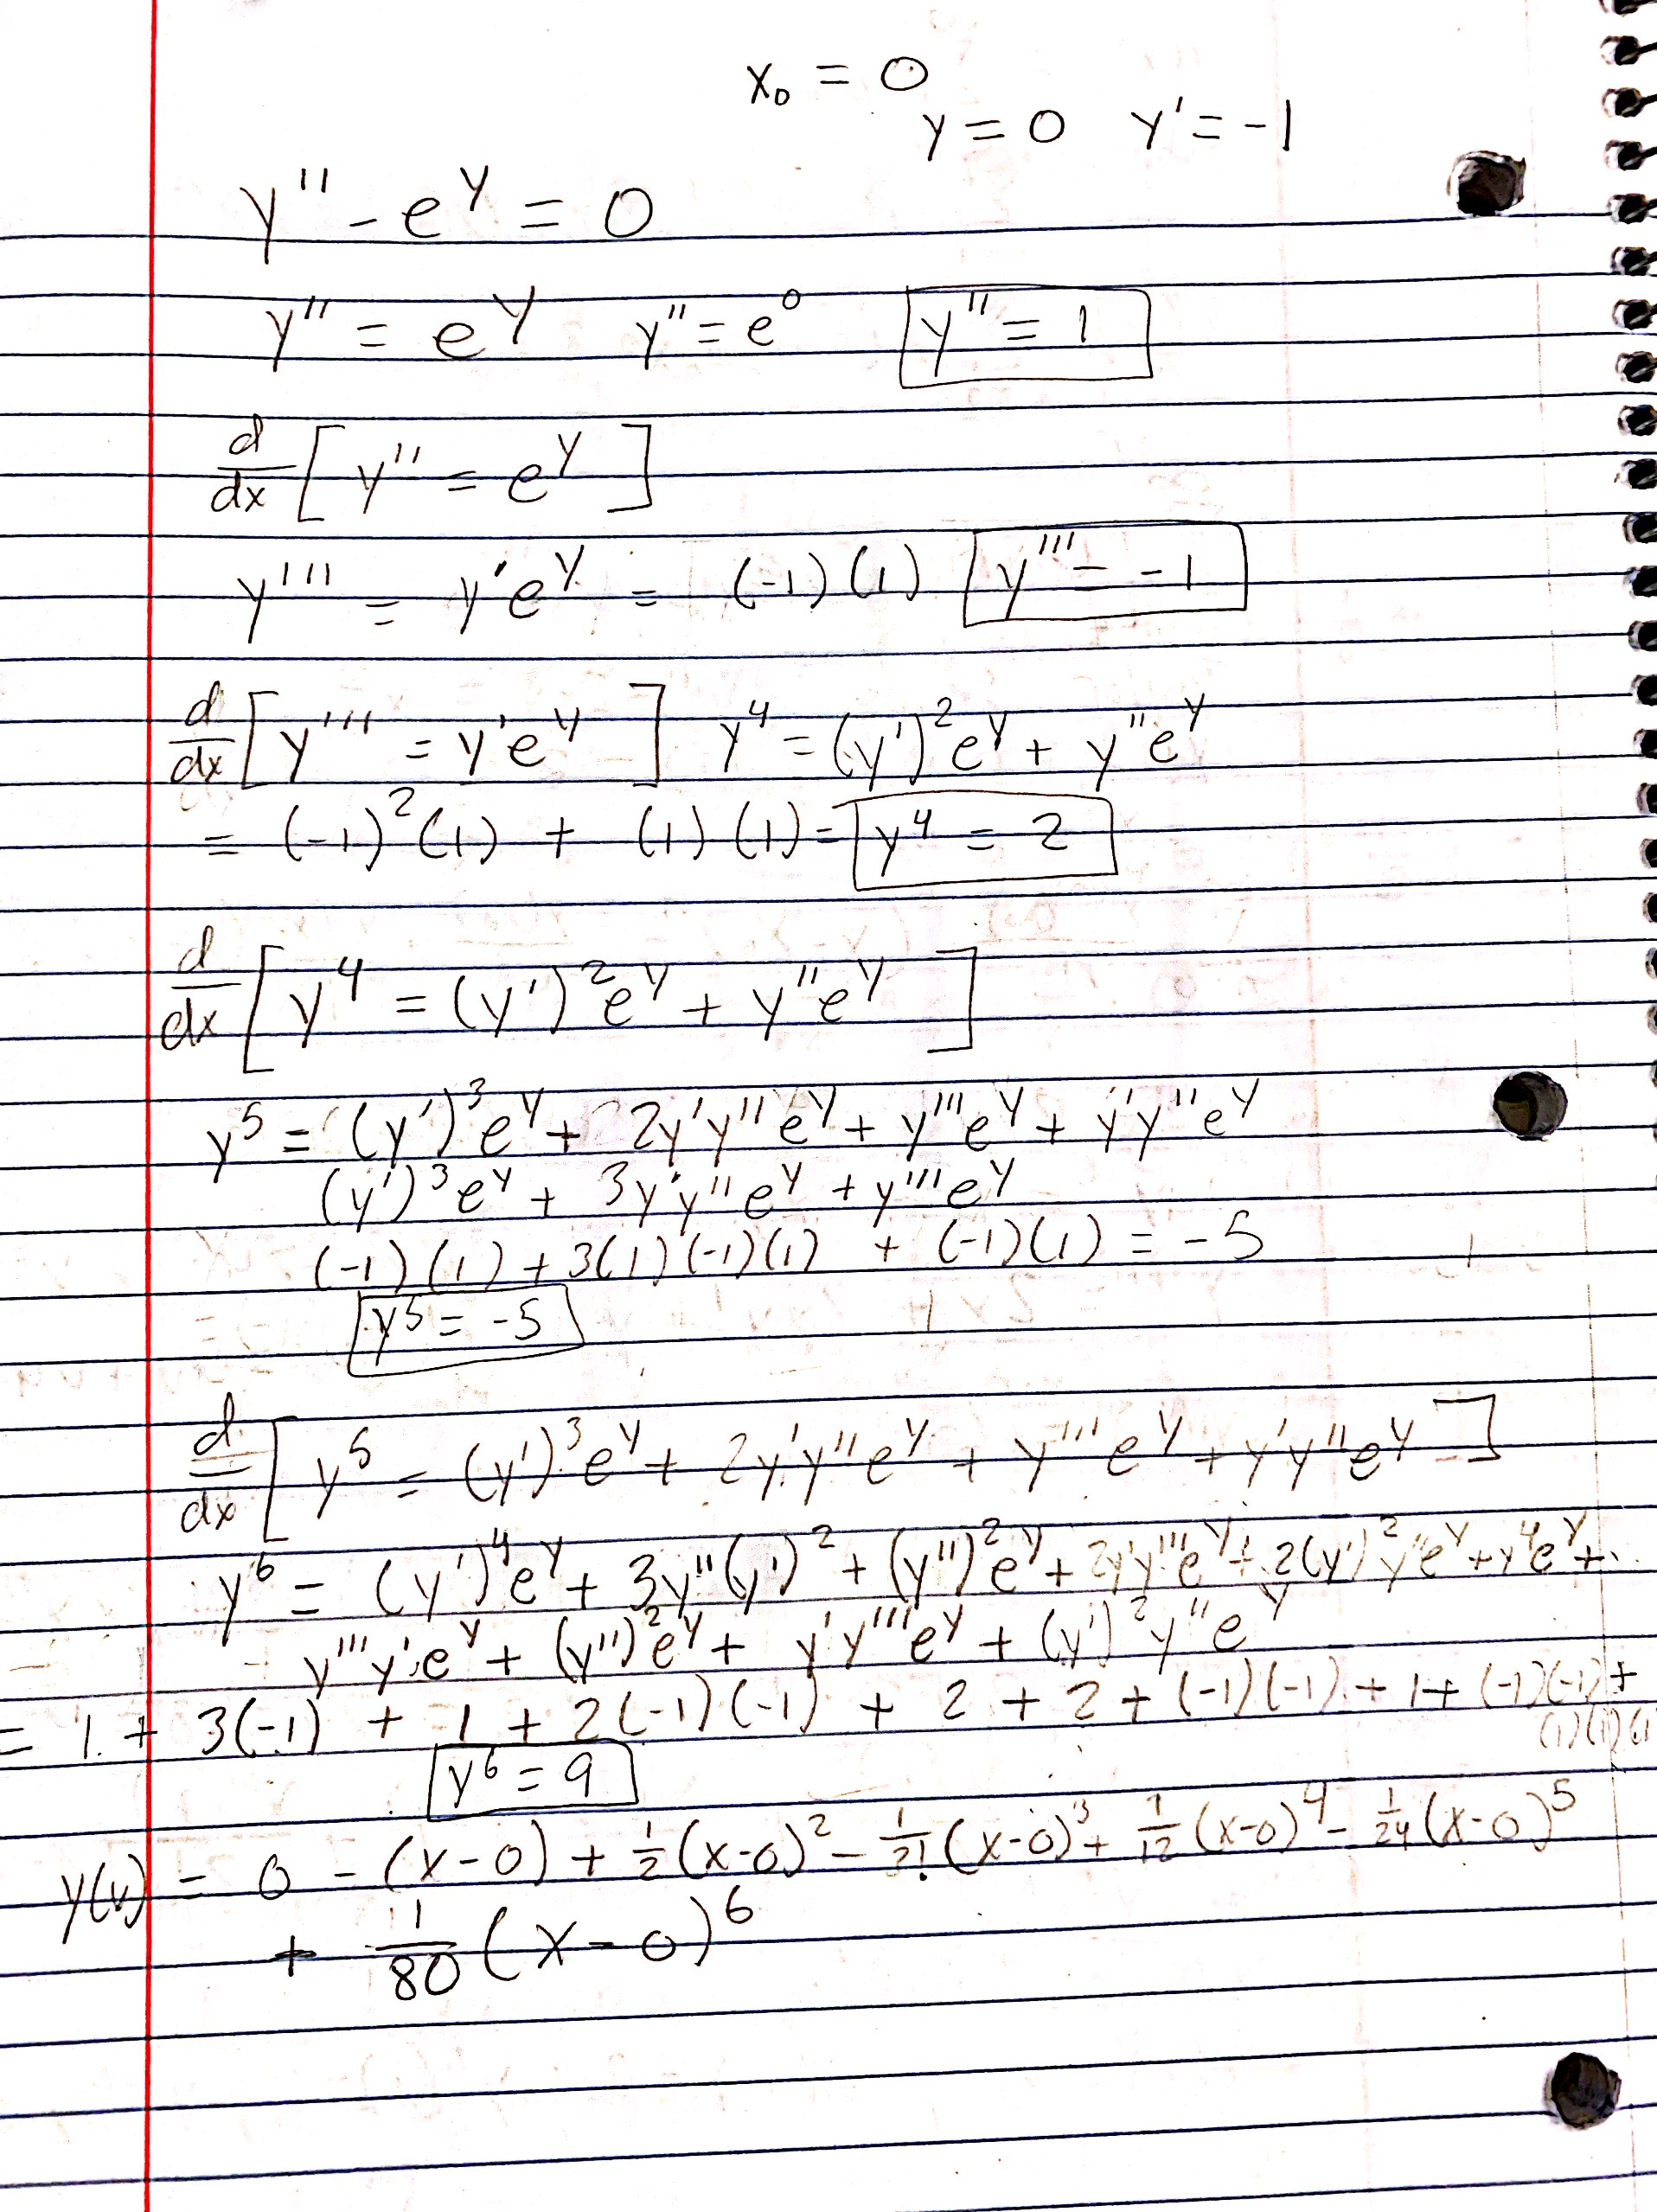 x₀ = 0
y = 0 y' = -1
y'' - e^y = 0
y'' = e^y y'' = e^0 y'' = 1
d/dx [ y'' = e^y ]
y''' = y'e^y = (-1)(1) y''' = -1
d/dx [ y''' = y'e^y ] y^4 = (y')^2 e^y + y''e^y
= (-1)^2 (1) + (1)(1) = y^4 = 2
d/dx [ y^4 = (y')^2 e^y + y''e^y ]
y^5 = (y')^3 e^y + 2y'y''e^y + y'''e^y + y'y''e^y
(y')^3 e^y + 3y'y''e^y + y'''e^y
(-1)(1) + 3(1)(-1)(1) + (-1)(1) = -5
y^5 = -5
d/dx [ y^5 = (y')^3 e^y + 2y'y''e^y + y'''e^y + y'y''e^y ]
y^6 = (y')^4 e^y + 3y''(y')^2 + (y'')^2 e^y + 2y'y'''e^y + 2(y')^2 y''e^y + y^4 e^y + ...
y'''y'e^y + (y'')^2 e^y + y'y'''e^y + (y')^2 y''e^y
= 1 + 3(-1) + 1 + 2(-1)(-1) + 2 + 2 + (-1)(-1) + 1 + (-1)(-1) +
(1)(1)(1)
y^6 = 9
y(x) = 0 - (x-0) + 1/2 (x-0)^2 - 1/3! (x-0)^3 + 1/12 (x-0)^4 - 1/24 (x-0)^5
+ 1/80 (x-0)^6